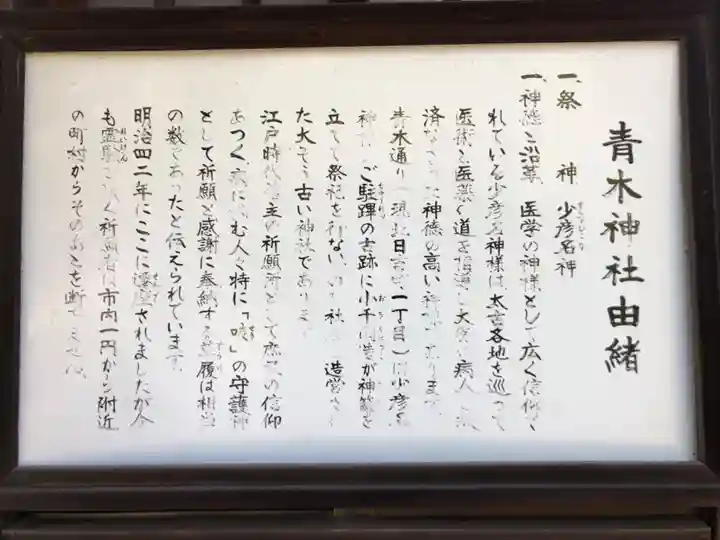 青木神社由緒
一、祭　神　少彦名神
一、神徳と沿革　医学の神様として広く信仰
れている少彦名神様は、太古各地を巡って
医術と医薬の道を指導し大 病人
済な 神徳の高い神 あります
青木通り（現 日吉町一丁目）は少彦名
神 ご駐蹕の古跡に小千 が神籬を
立てて祭祀を行な 社 造営さ
た大そう古い神社であります
江戸時代 主の祈願所として庶 の信仰
あつく病に む人々特に「 」の守護神
として祈願と感謝に奉納する 履は相当
の数であったと伝えられています
明治四二年にここに遷座されましたが今
も霊験 く祈願者は市内一円から附近
の町村からそのあとを断 ません